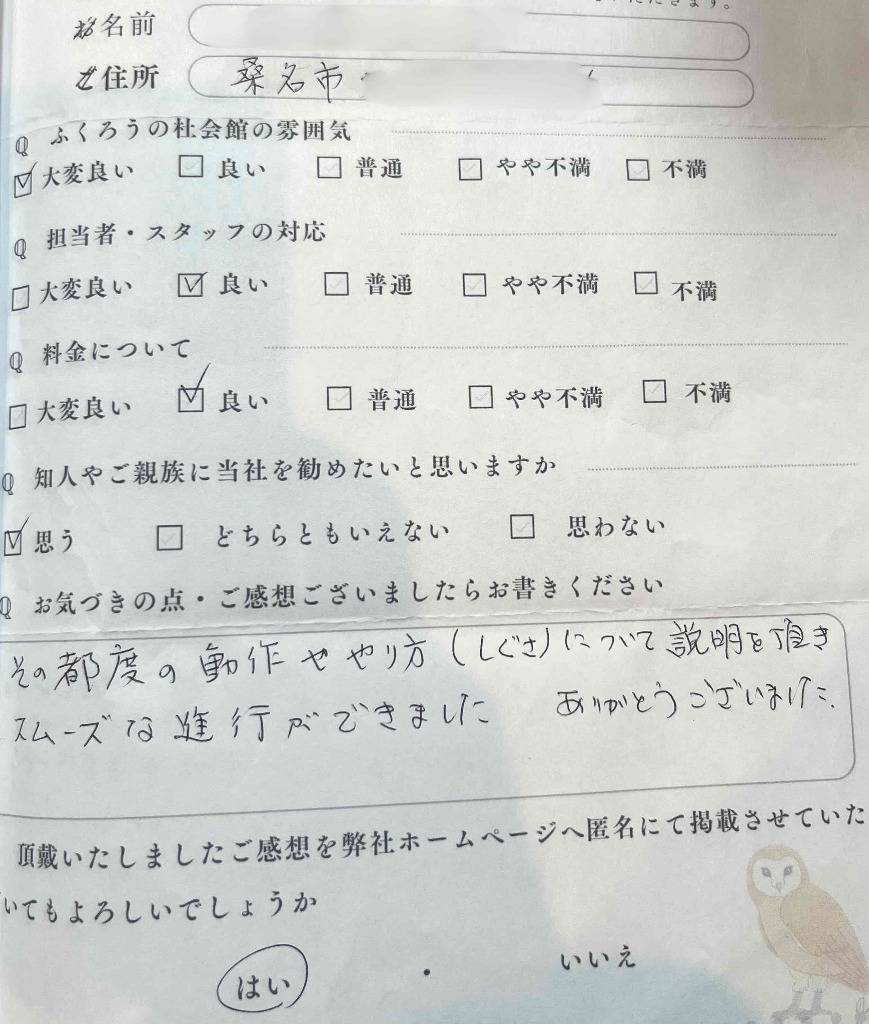 お名前
ご住所 桑名市
Q ふくろうの杜会館の雰囲気
大変良い 良い 普通 やや不満 不満
Q 担当者・スタッフの対応
大変良い 良い 普通 やや不満 不満
Q 料金について
大変良い 良い 普通 やや不満 不満
Q 知人やご親族に当社を勧めたいと思いますか
思う どちらともいえない 思わない
Q お気づきの点・ご感想ございましたらお書きください
その都度の動作ややり方(しぐさ)について説明を頂き
スムーズな進行ができました ありがとうございました.
頂戴いたしましたご感想を弊社ホームページへ匿名にて掲載させていた
いてもよろしいでしょうか
はい ・ いいえ